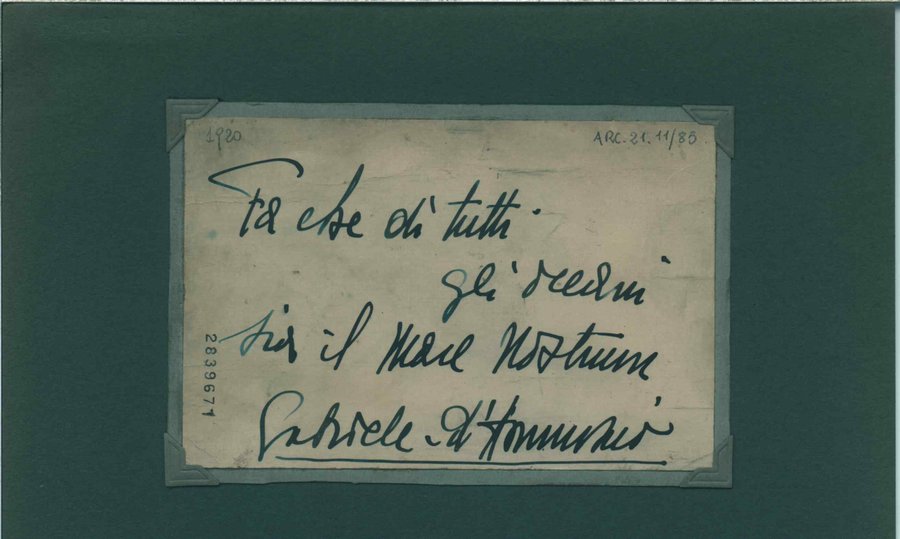 1920
ARC. 21. 11/85
Fa che di tutti
gli oceani
sia il Mare Nostrum
Gabriele d'Annunzio
2839671